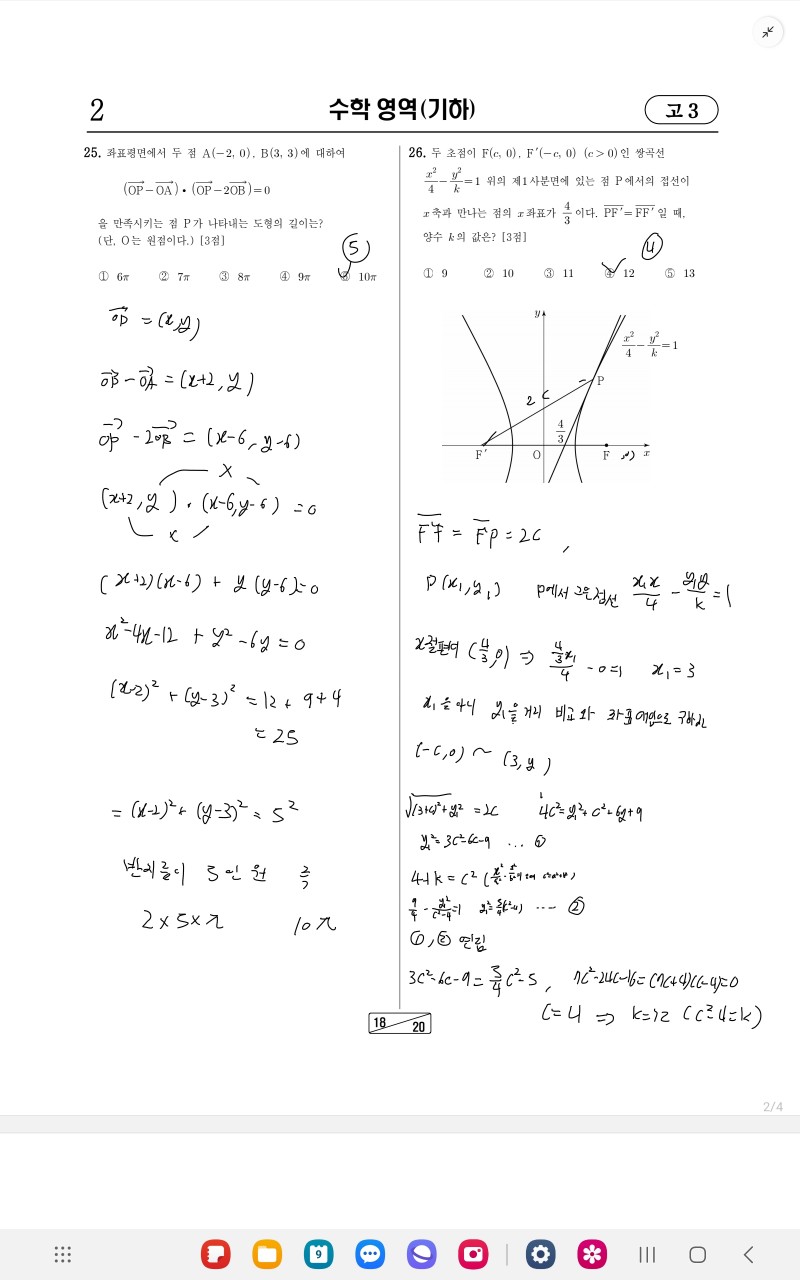 2
수학 영역(기하)
고 3
25. 좌표평면에서 두 점 A(−2, 0), B(3, 3)에 대하여
(OP−OA)•(OP−2OB)=0
을 만족시키는 점 P가 나타내는 도형의 길이는?
(단, O는 원점이다.) [3점]
⑤
① 6π ② 7π ③ 8π ④ 9π ⑤ 10π
OP = (x,y)
OB−OA = (x+2, y)
OP − 2OB = (x−6, y−6)
x
(x+2, y) · (x−6, y−6) = 0
x
(x+2)(x−6) + y(y−6)=0
x²−4x−12 + y²−6y=0
(x−2)² + (y−3)² = 12 + 9+4
= 25
= (x−2)² + (y−3)² = 5²
반지름이 5인 원
2×5×π 10π
26. 두 초점이 F(c, 0), F′(−c, 0) (c>0)인 쌍곡선
x²/4 − y²/k =1 위의 제1사분면에 있는 점 P에서의 접선이
x축과 만나는 점의 x좌표가 4/3이다. PF′=FF′일 때,
양수 k의 값은? [3점]
④
① 9 ② 10 ③ 11 ④ 12 ⑤ 13
y
x²/4 − y²/k =1
P
2 c
4/3
F′ O F x
FF′ = F′P = 2C,
P(x₁,y₁) P에서 그은 접선 x₁x/4 − y₁y/k = 1
x절편이 (4/3,0) ⇒ 4/3x₁/4 − 0=1 x₁=3
x₁을 아니 y₁을 거리 비교와
(−c,0) ~ (3,y)
√(3+c)²+y₁² = 2C 4c²=y₁²+c²+6c+9
y₁²=3c²−6c−9 … ①
4+k = c²
9/4 − y₁²/c²−4=1 y₁²=5/4(c²−4) … ②
①,② 연립
3c²−6c−9=5/4c²−5, 7c²−24c−16=(7c+4)(c−4)=0
c=4 ⇒ k=12 (c²−4=k)
18 20
2/4
9